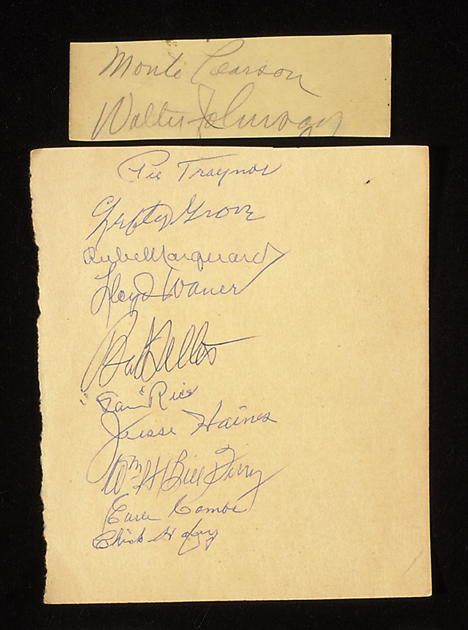 Monte Pearson
Walter Johnson
Pie Traynor
Lefty Grove
Rube Marquard
Lloyd Waner
"Sam" Rice
Jesse Haines
Wm H "Bill" Terry
Earle Combs
Chick Hafey